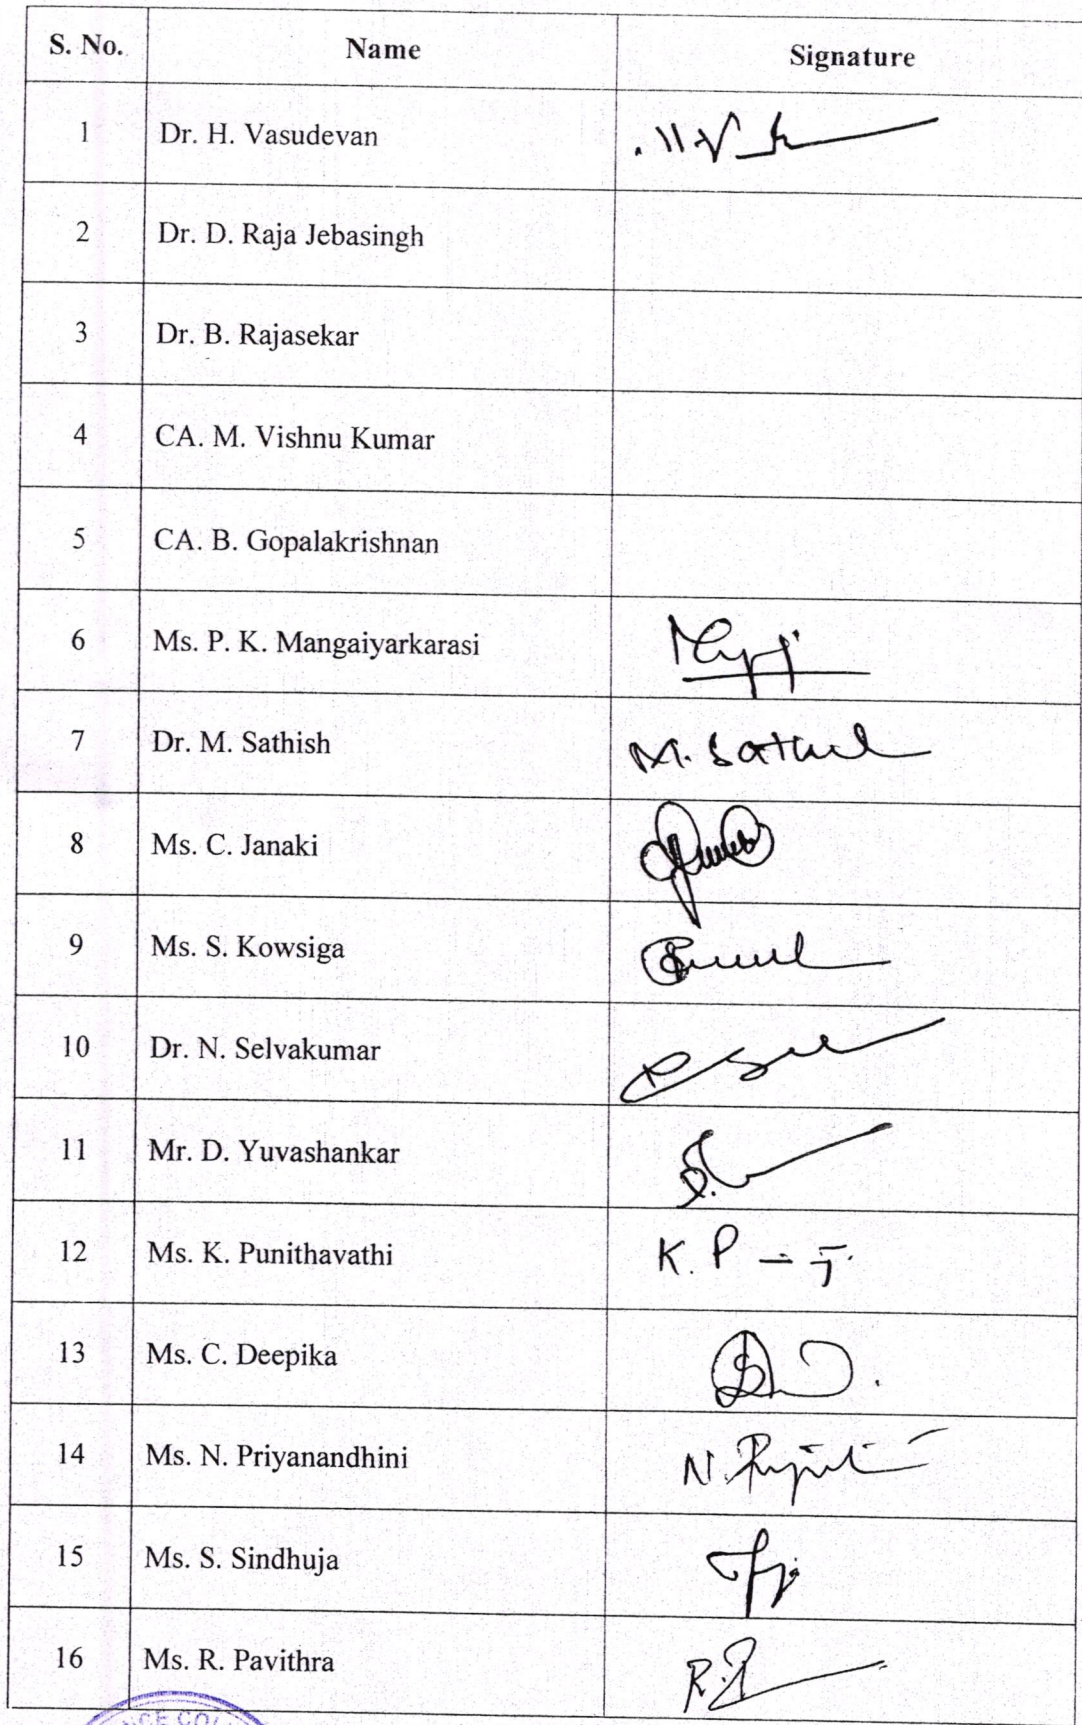 S. No. Name Signature
1 Dr. H. Vasudevan
2 Dr. D. Raja Jebasingh
3 Dr. B. Rajasekar
4 CA. M. Vishnu Kumar
5 CA. B. Gopalakrishnan
6 Ms. P. K. Mangaiyarkarasi
7 Dr. M. Sathish M. Sathish
8 Ms. C. Janaki
9 Ms. S. Kowsiga
10 Dr. N. Selvakumar
11 Mr. D. Yuvashankar
12 Ms. K. Punithavathi K. P
13 Ms. C. Deepika
14 Ms. N. Priyanandhini N.
15 Ms. S. Sindhuja
16 Ms. R. Pavithra R.